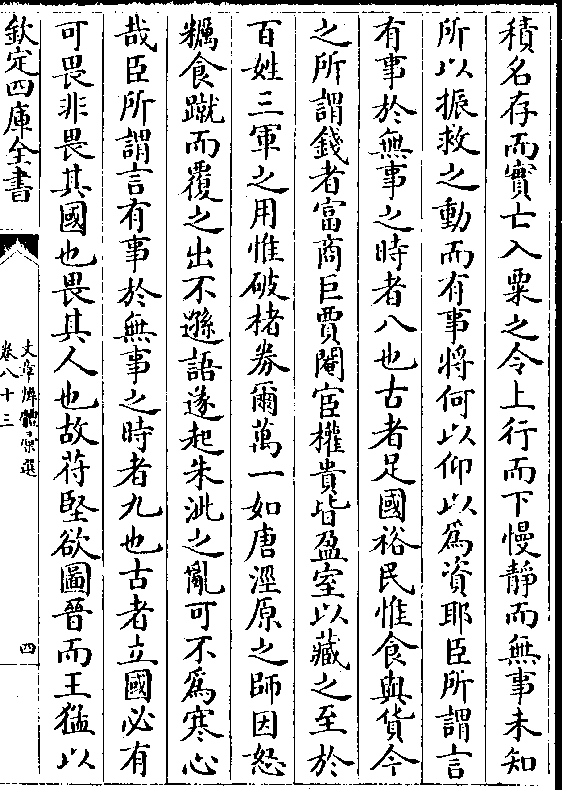 積名存而實亡入粟之令上行而下慢靜而無事未知
所以振救之動而有事將何以仰以為資耶臣所謂言
有事於無事之時者八也古者足國裕民惟食與貨今
之所謂錢者富商巨賈閹宦權貴皆盈室以藏之至於
百姓三軍之用惟破楮券爾萬一如唐涇原之師因怒
糲食蹴而覆之出不遜語遂起朱泚之亂可不為寒心
哉臣所謂言有事於無事之時者九也古者立國必有
可畏非畏其國也畏其人也故苻堅欲圖晉而王猛以
欽定四庫全書
文章辨體彚選
卷八十三
四